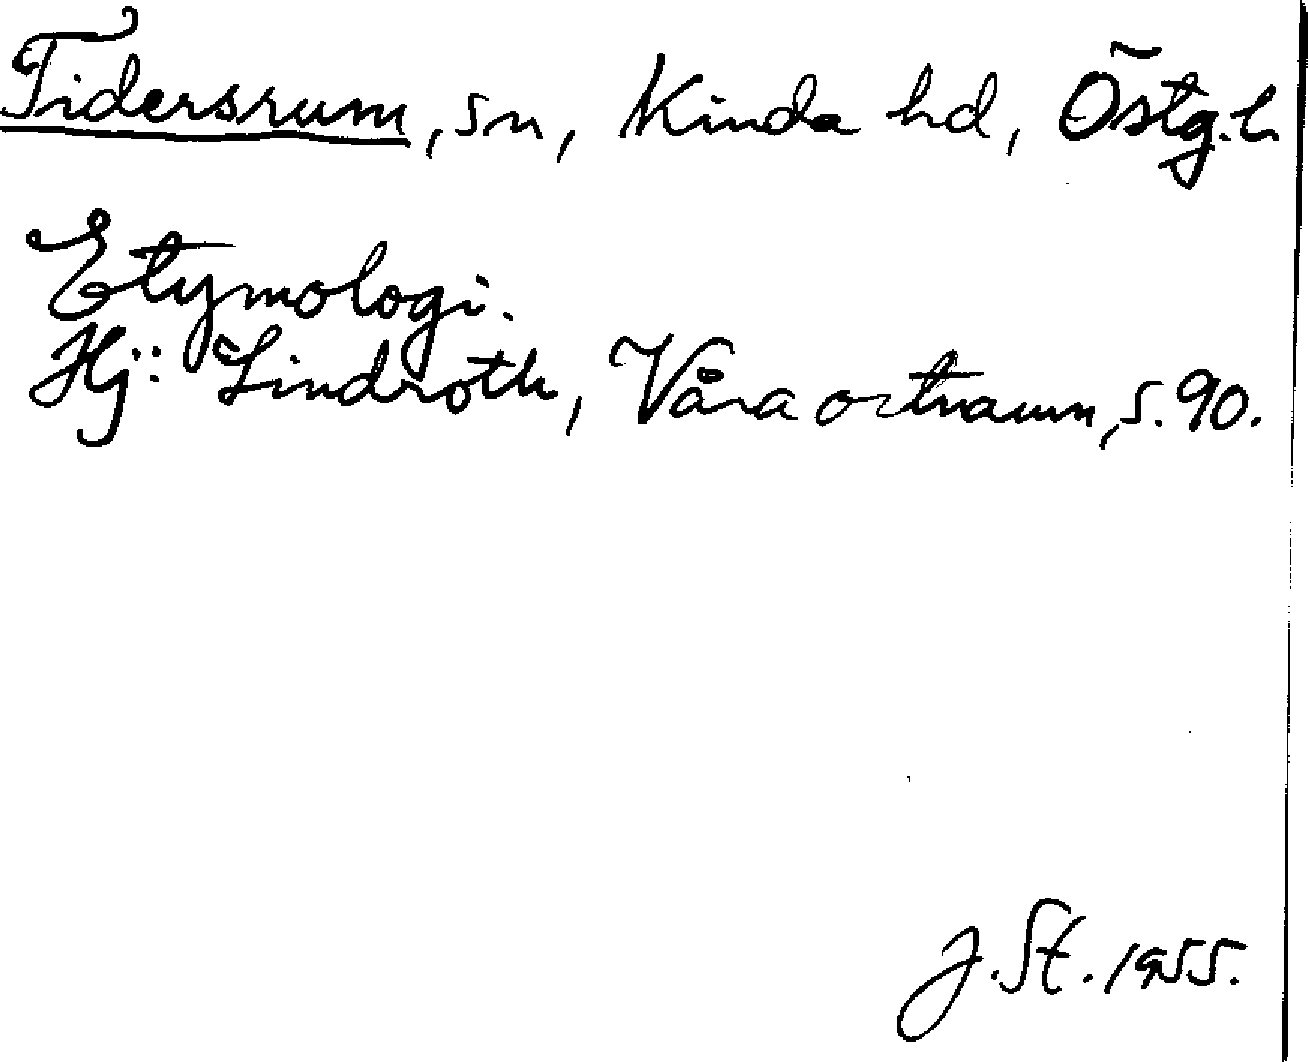 Tidersrum, sn, Kinda hd, Östg.l.
Etymologi.
Hj: Lindroth, Våra ortnamn, s. 90.
J. St. 1955.